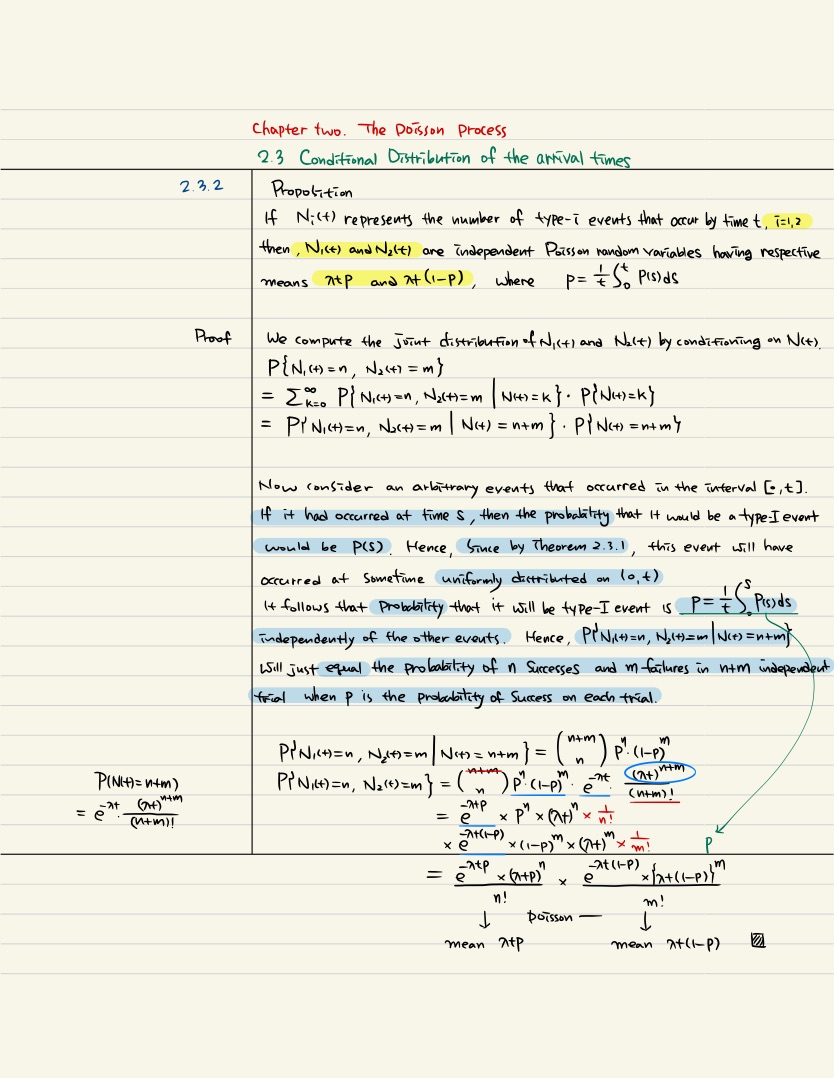 Chapter two. The Poisson Process
2.3 Conditional Distribution of the arrival times
2.3.2 Proposition
If Nᵢ(t) represents the number of type-i events that occur by time t, i=1,2
then, N₁(t) and N₂(t) are independent Poisson random variables having respective
means λtp and λt(1-p), where p = 1/t ∫₀ᵗ P(s)ds
Proof We compute the joint distribution of N₁(t) and N₂(t) by conditioning on N(t).
P{N₁(t)=n, N₂(t)=m}
= Σ_{k=0}^∞ P{N₁(t)=n, N₂(t)=m | N(t)=k} · P{N(t)=k}
= P{N₁(t)=n, N₂(t)=m | N(t)=n+m} · P{N(t)=n+m}
Now consider an arbitrary events that occurred in the interval [0,t].
If it had occurred at time s, then the probability that it would be a type-I event
would be P(s). Hence, since by Theorem 2.3.1, this event will have
occurred at sometime uniformly distributed on (0,t)
It follows that Probability that it will be type-I event is P = 1/t ∫₀ˢ P(s)ds
independently of the other events. Hence, P{N₁(t)=n, N₂(t)=m | N(t)=n+m}
will just equal the probability of n successes and m failures in n+m independent
trial when p is the probability of success on each trial.
P{N₁(t)=n, N₂(t)=m | N(t)=n+m} = (n+m n) Pⁿ·(1-p)ᵐ
P{N₁(t)=n, N₂(t)=m} = (n+m n) Pⁿ·(1-p)ᵐ · e^{-λt} · (λt)^{n+m}/(n+m)!
P(N(t)=n+m)
= e^{-λt} · (λt)^{n+m}/(n+m)!
= e^{-λtp} × Pⁿ × (λt)ⁿ × 1/n!
× e^{-λt(1-p)} × (1-p)ᵐ × (λt)ᵐ × 1/m! P
= e^{-λtp} × (λtp)ⁿ/n! × e^{-λt(1-p)} × {λt(1-p)}ᵐ/m!
↓ poisson — ↓
mean λtp mean λt(1-p)